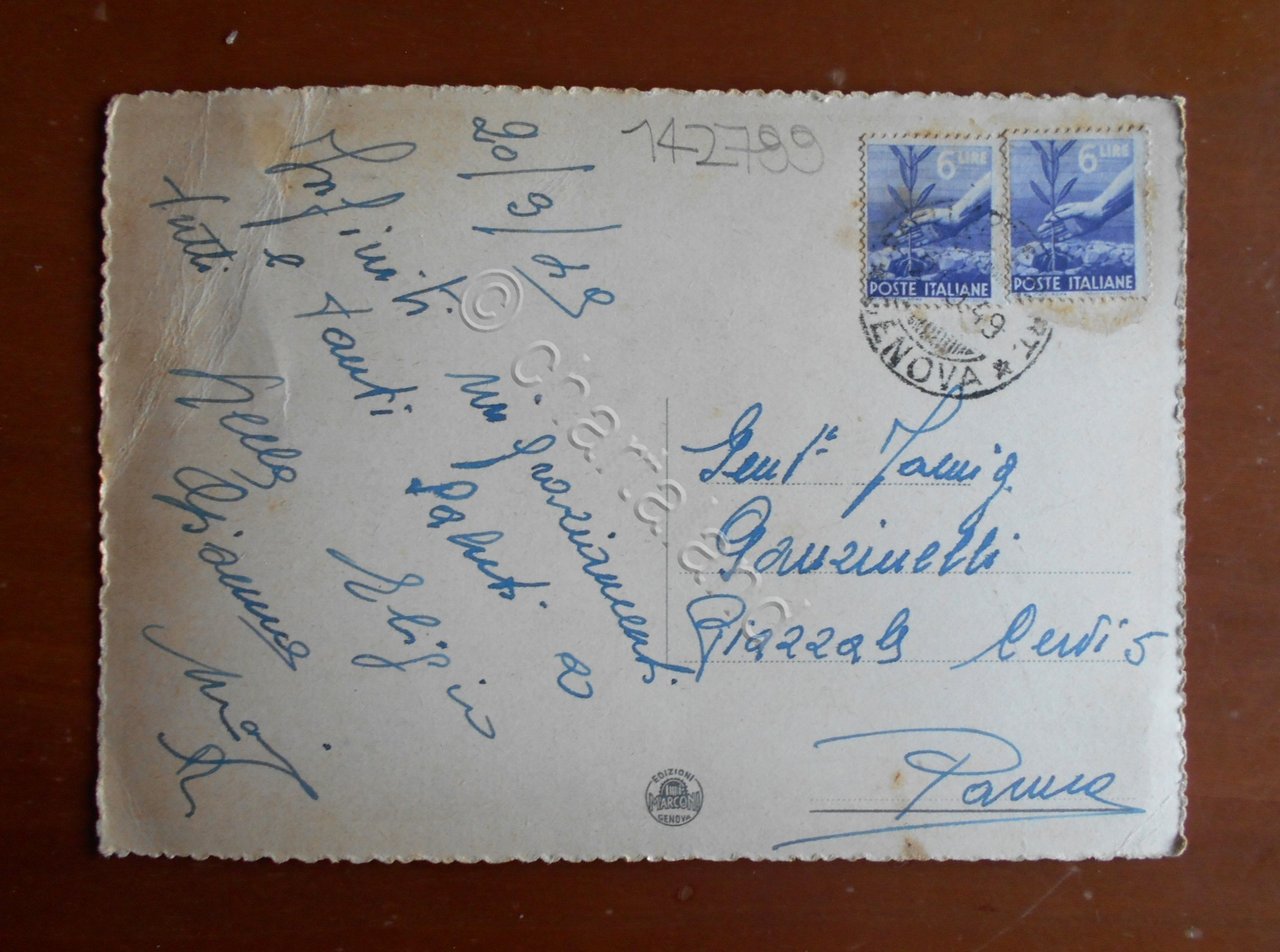 142799
20/9/49
Infiniti ringraziamenti
e tanti saluti a
tutti
Eligio
Gianna
6 LIRE
POSTE ITALIANE
6 LIRE
POSTE ITALIANE
GENOVA
49
Gent. Famig
Piazzale Cervi 5
Parma
EDIZIONI
MARCONI
GENOVA
© ciaria